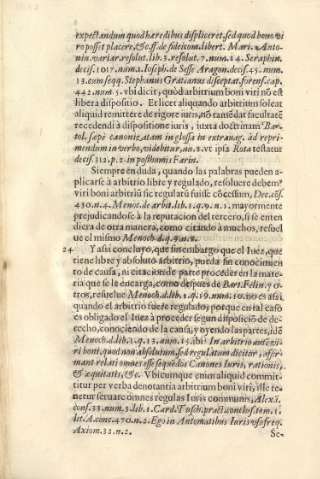 expectandum quòd hæredibus displiceret, sed quòd bono vi
ro posset placere, & c. ff. de fideicom. libert. Mari. Anto-
nin. variar. resolut. lib. 3. resolut. 7. num. 14. Seraphin.
decis. 1017. num. 2. Ioseph. de Sesse Aragon. decis. 45. num.
13. cum seqq. Stephanus Gratianus disceptat. forens. cap.
442. num. 5. vbi dicit, quòd arbitrium boni viri nõ est
libera dispositio. Et licet aliquando arbitrium soleat
aliquid remittere de rigore iuris, nõ tamẽ dat facultatẽ
recedendi à dispositione iuris, iuxta doctrinam Bar-
tol.
dimendum in verbo, videbitur, nu. 2. vt ipsa Rota testatur
decis. 112. p. 2. in posthumis Farin.
Siempre en duda, quando las palabras pueden a-
plicarse à arbitrio libre y regulado, resoluere debemº
viri boni arbitriũ sic regularũ fuisse cõcessum, Dec.
450. n. 4. Menoc. de arbi. lib. 1. q. 9. n. 1. mayormente
prejudicandose à la reputacion del tercero, si se enten
diera de otra manera, como citando à muchos, resuel
ue el mismo Menoch. d. q. 9. n. 2.
24 Y assi concluyo, que sin embargo que el Iuez, que
tiene libre y absoluto arbitrio, pueda sin conocimien
to de causa, ni citacion de parte proceder en la mate-
ria que se le encarga, como despues de Bart. Felin. y o-
tros, resuelue Menoch. d. lib. 1. q. 19. num. 10. no es assi,
quando el arbitrio fuere regulado, porque en tal caso
es obligado el Iuez à proceder segun disposicion de de-
recho, conociendo de la causa, y oyendo las partes, idẽ
Menoch. d. lib. 1. q. 13. num. 15. ibi: In arbitrio autẽ vi-
ri boni, quod non absolutum, sed regulatum dicitur, affir-
mant relati omnes esse sequẽdos Canones Iuris, rationis,
& æquitatis, &c. Vbicumque enim aliquid commit-
titur per verba denotantia arbitrium boni viri, ille te-
netur seruare omnes regulas Iuris communis, Alexã.
cons. 33. num. 3. lib. 1. Card. Tusch. pract. conclus. tom. 1.
lit. A. conc. 470. n. 2. Ego in Axiomatibus Iuris vsu freq.
Axiom. 32. n. 2.
Se-